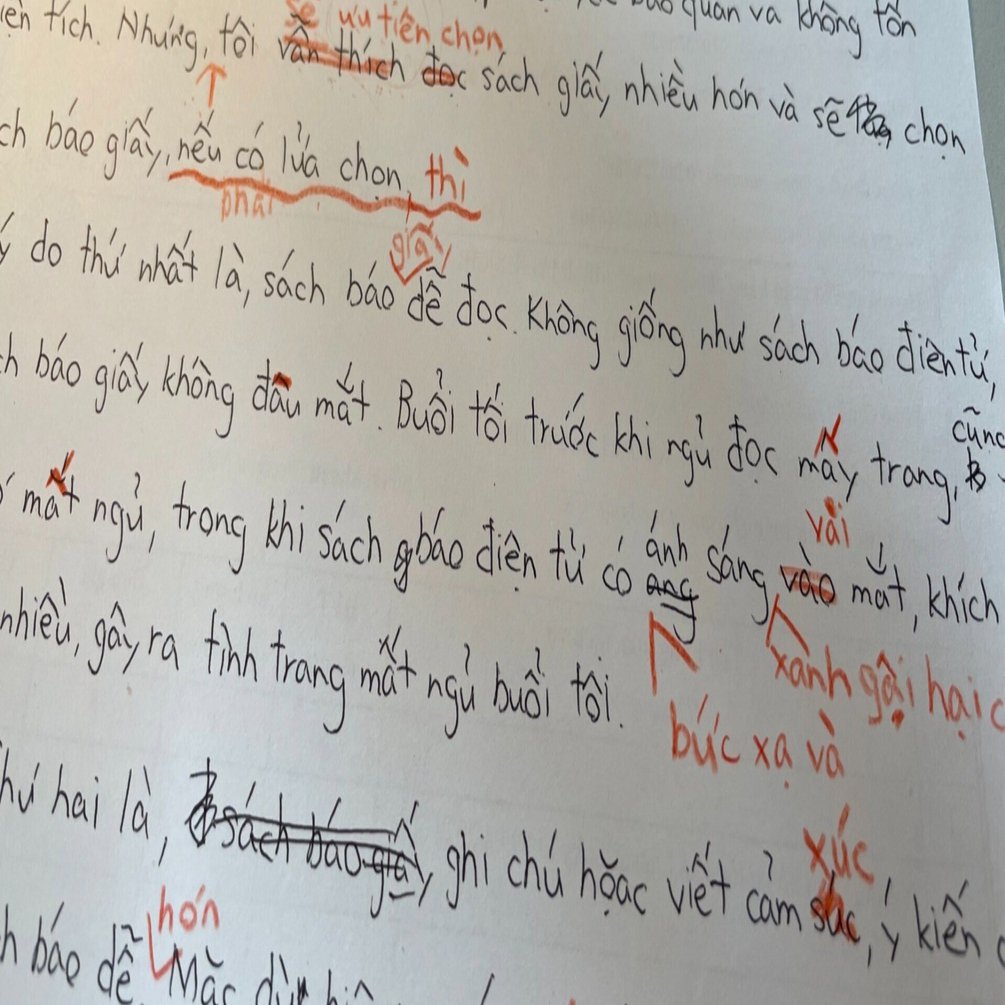 quan và không tốn
sẽ ưu tiên chọn
tích. Nhưng, tôi vẫn thích đọc sách giấy nhiều hơn và sẽ chọn
ch báo giấy, nếu có lựa chọn, thì
phải
giấy
do thứ nhất là, sách báo dễ đọc. Không giống như sách báo điện tử,
h báo giấy không đău mắt. Buổi tối trước khi ngủ đọc mấy trang,
cũng
mất ngủ, trong khi sách báo điện tử có ánh sáng vào mắt, khích
ang
vài
nhiều, gây ra tình trạng mất ngủ buổi tối.
xành gậi hại c
bức xạ và
hứ hai là, sách báo giấy ghi chú hoặc viết cảm súc, ý kiến
xúc
hơn
h báo dễ Mặc dù